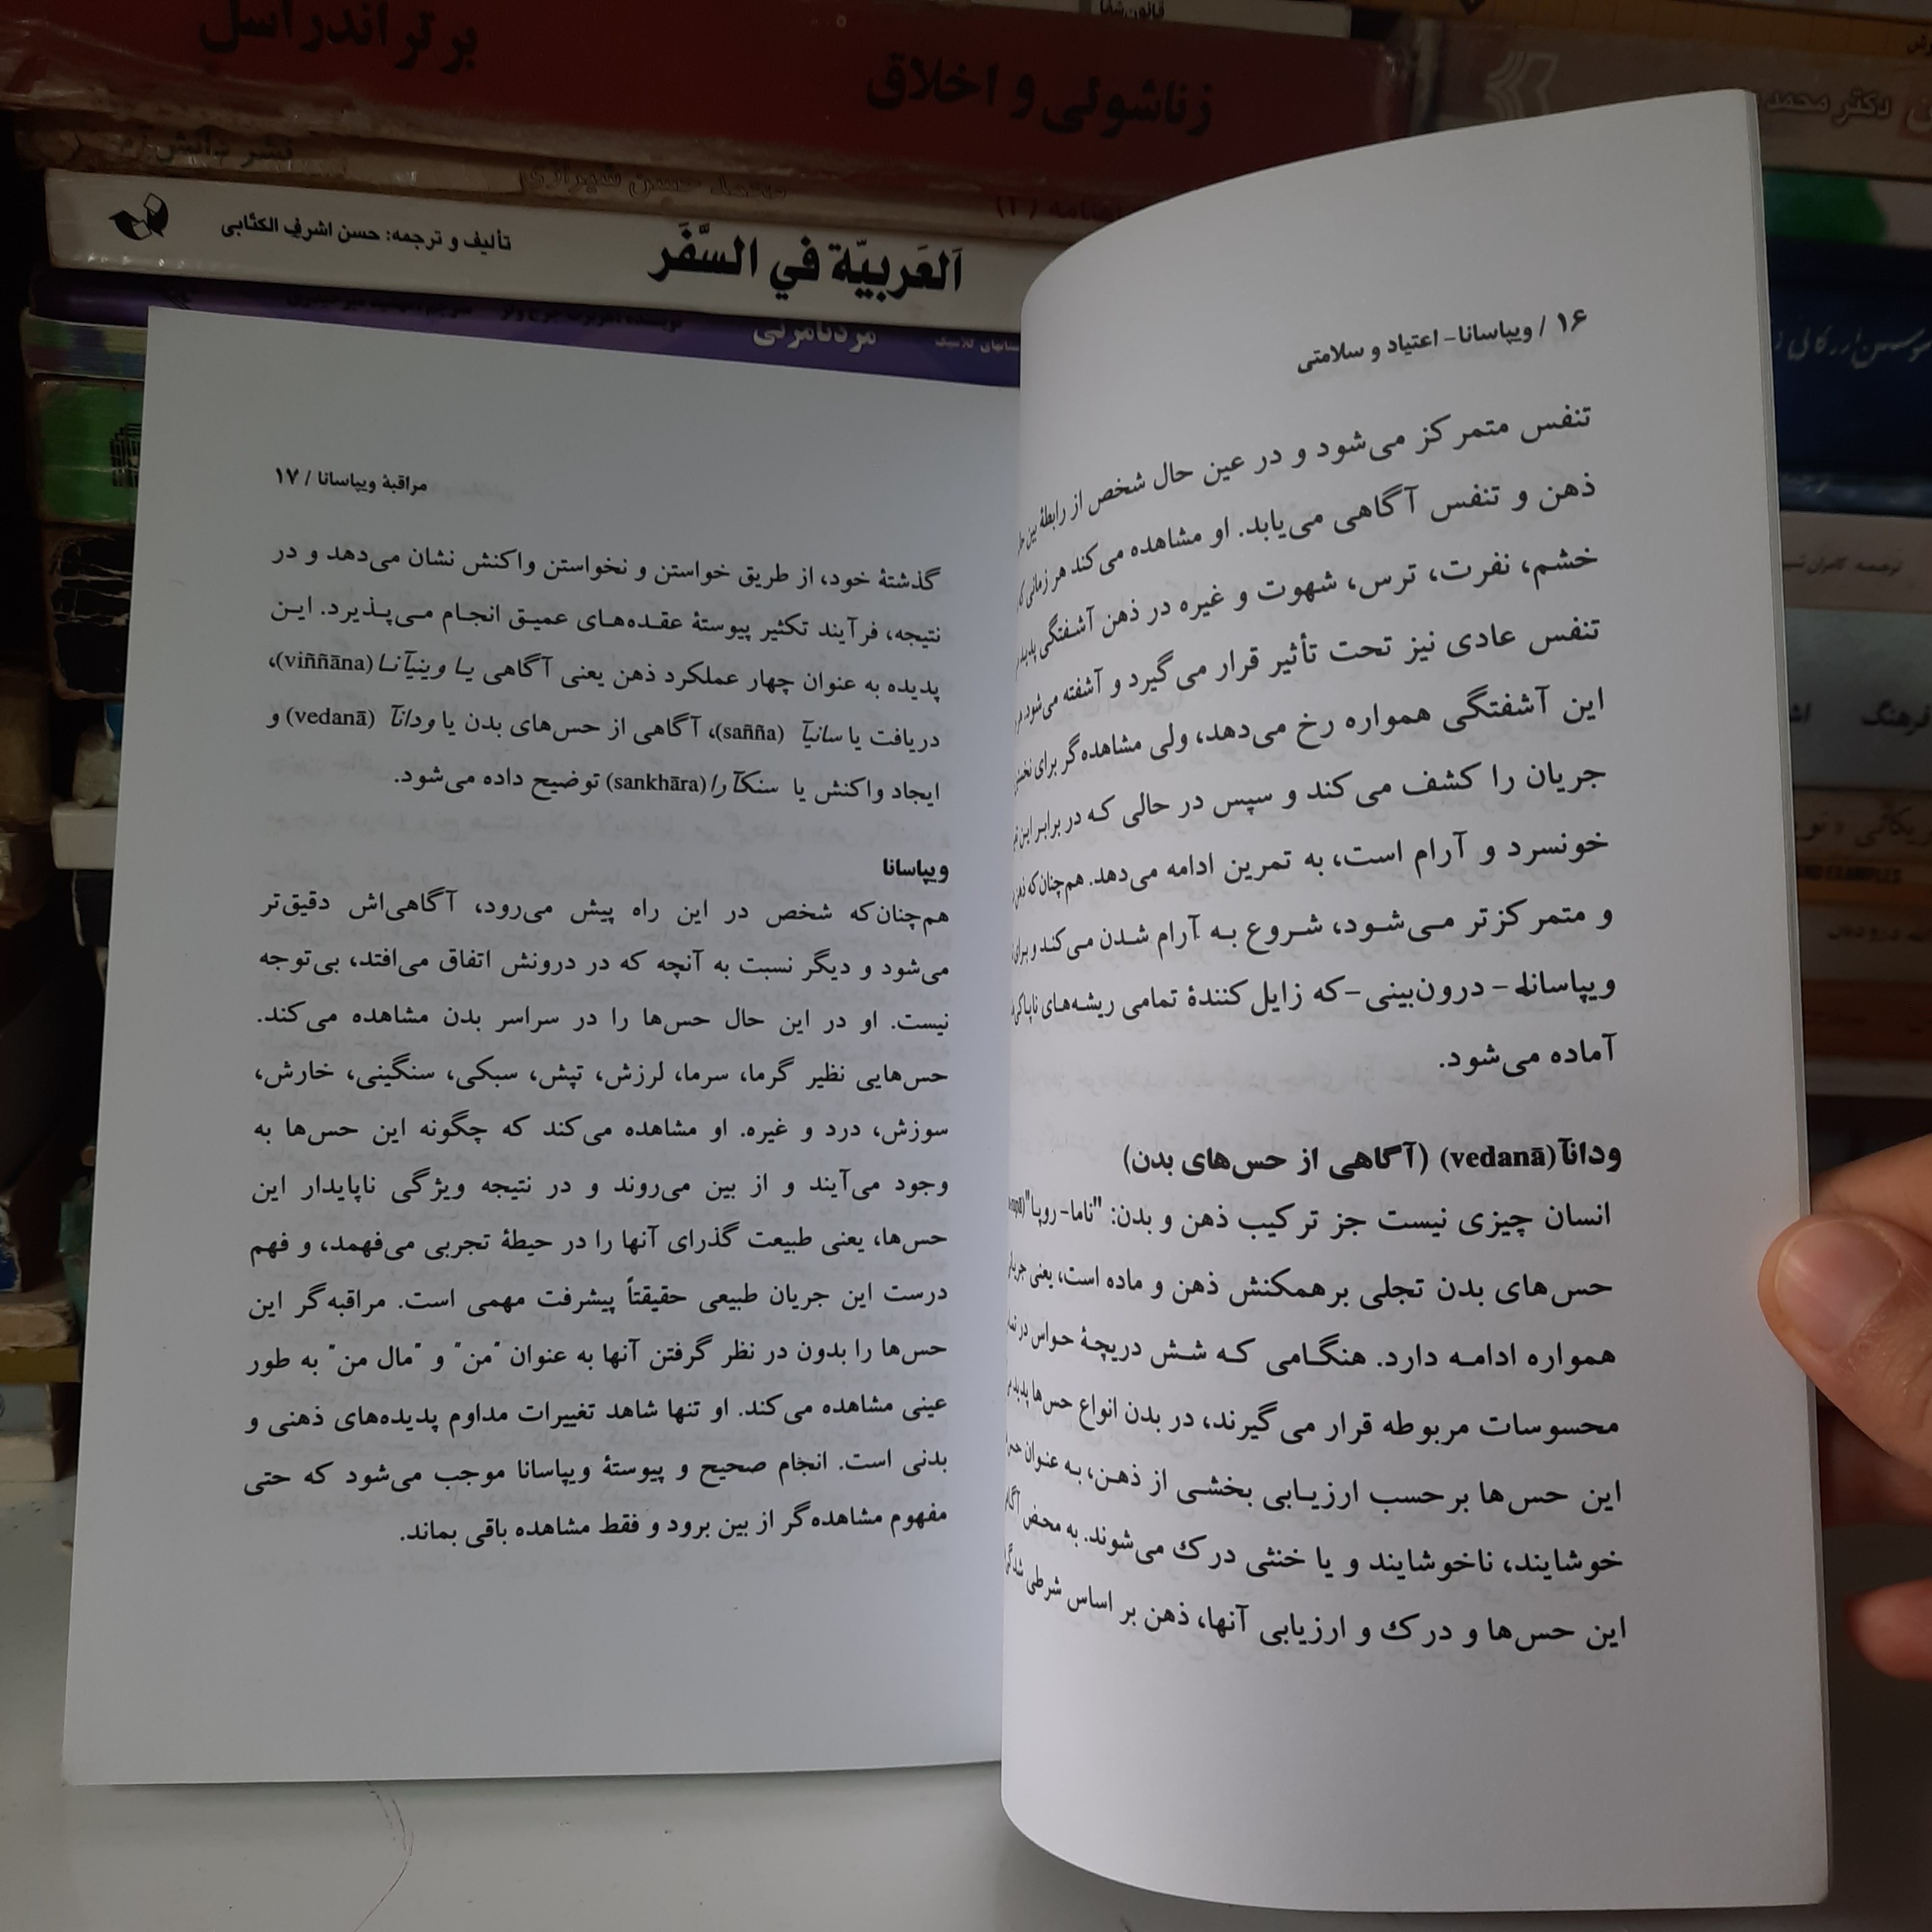 قانون شفا
برتراندراسل
زناشوئی و اخلاق
دکتر محمد
نشر دانش
محمد حسن شیرازی
تألیف و ترجمه: حسن اشرف الکتابی
اَلعَربيّة في السَّفَر
مردنامرئی
ترجمه کامران
فرهنگ
AND EXAMPLES
۱۶ / ویپاسانا- اعتیاد و سلامتی
تنفس متمرکز می‌شود و در عین حال شخص از رابطهٔ بین
ذهن و تنفس آگاهی می‌یابد. او مشاهده می‌کند هر زمانی که
خشم، نفرت، ترس، شهوت و غیره در ذهن آشفتگی پدید
تنفس عادی نیز تحت تأثیر قرار می‌گیرد و آشفته می‌شود.
این آشفتگی همواره رخ می‌دهد، ولی مشاهده‌گر برای
جریان را کشف می‌کند و سپس در حالی که در برابر این
خونسرد و آرام است، به تمرین ادامه می‌دهد. هم‌چنان‌که ذهن
و متمرکزتر می‌شود، شروع به آرام شدن می‌کند و برای
ویپاسانا- درون‌بینی -که زایل‌کنندهٔ تمامی ریشه‌های
آماده می‌شود.
ودانآ(vedanā) (آگاهی از حس‌های بدن)
انسان چیزی نیست جز ترکیب ذهن و بدن: "ناما- روپا"
حس‌های بدن تجلی برهمکنش ذهن و ماده است، یعنی
همواره ادامه دارد. هنگامی که شش دریچهٔ حواس در
محسوسات مربوطه قرار می‌گیرند، در بدن انواع حس‌ها
این حس‌ها برحسب ارزیابی بخشی از ذهن، به عنوان
خوشایند، ناخوشایند و یا خنثی درک می‌شوند. به محض
این حس‌ها و درک و ارزیابی آنها، ذهن بر اساس شرطی
مراقبهٔ ویپاسانا / ۱۷
گذشتهٔ خود، از طریق خواستن و نخواستن واکنش نشان می‌دهد و در
نتیجه، فرآیند تکثیر پیوستهٔ عقده‌های عمیق انجام می‌پذیرد. این
پدیده به عنوان چهار عملکرد ذهن یعنی آگاهی یا وینیآنا(viññāna)،
دریافت یا سانیآ (sañña)، آگاهی از حس‌های بدن یا ودانآ (vedanā) و
ایجاد واکنش یا سنکآرا(sankhāra) توضیح داده می‌شود.
ویپاسانا
هم‌چنان‌که شخص در این راه پیش می‌رود، آگاهی‌اش دقیق‌تر
می‌شود و دیگر نسبت به آنچه که در درونش اتفاق می‌افتد، بی‌توجه
نیست. او در این حال حس‌ها را در سراسر بدن مشاهده می‌کند.
حس‌هایی نظیر گرما، سرما، لرزش، تپش، سبکی، سنگینی، خارش،
سوزش، درد و غیره. او مشاهده می‌کند که چگونه این حس‌ها به
وجود می‌آیند و از بین می‌روند و در نتیجه ویژگی ناپایدار این
حس‌ها، یعنی طبیعت گذرای آنها را در حیطهٔ تجربی می‌فهمد، و فهم
درست این جریان طبیعی حقیقتاً پیشرفت مهمی است. مراقبه‌گر این
حس‌ها را بدون در نظر گرفتن آنها به عنوان "من" و "مال من" به طور
عینی مشاهده می‌کند. او تنها شاهد تغییرات مداوم پدیده‌های ذهنی و
بدنی است. انجام صحیح و پیوستهٔ ویپاسانا موجب می‌شود که حتی
مفهوم مشاهده‌گر از بین برود و فقط مشاهده باقی بماند.